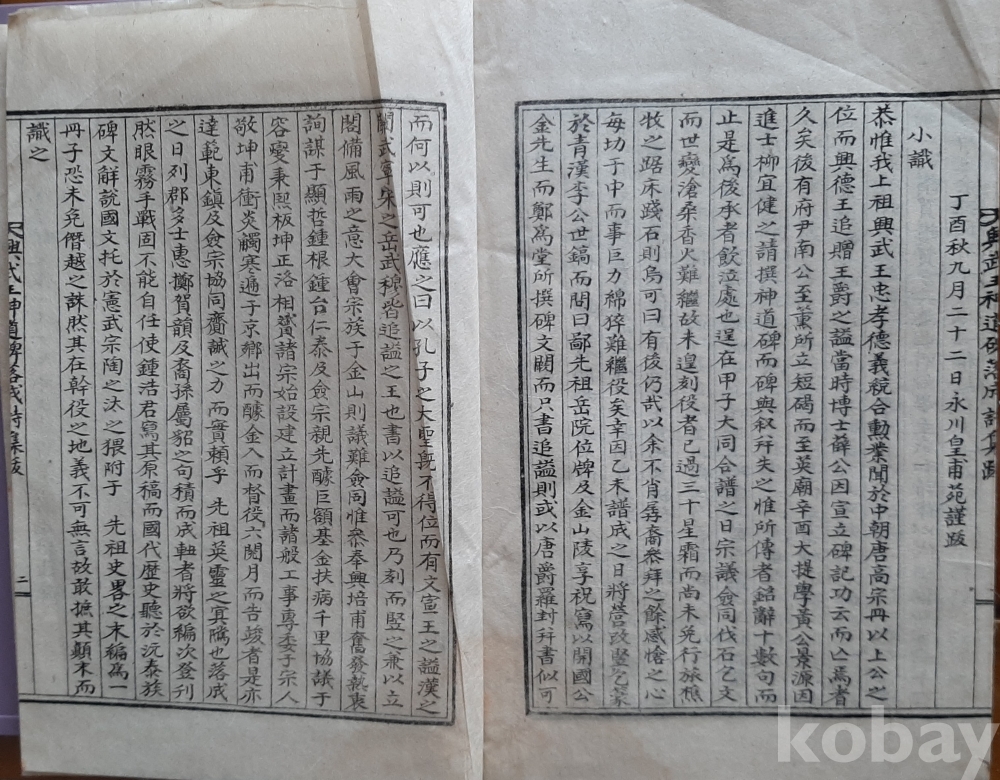 興武王神道碑落成詩集跋
丁酉秋九月二十二日永川皇甫苑謹跋
小識
恭惟我上祖興武王忠孝德義統合勳業聞於中朝唐高宗冊以上公之
位而興德王追贈王爵之謚當時博士薛公因宣立碑記功云而亡焉者
久矣後有府尹南公至薰所立短碣而至英廟辛酉大提學黃公景源因
進士柳宜健之請撰神道碑而碑與叙幷失之惟所傳者銘辭十數句而
止是爲後承者飮泣處也逞在甲子大同合譜之日宗議僉同伐石乞文
而世變滄桑香火難繼故未遑刻役者已過三十星霜而尚未免行旅樵
牧之踞床踐石則烏可曰有後仍哉以余不肖孱裔叅拜之餘感愴之心
每切于中而事巨力綿猝難繼役矣幸因乙未譜成之日將營改竪乞篆
於青漢李公世鎬而閱曰鄙先祖岳院位牌及金山陵享祝寫以開國公
金先生而鄭爲堂所撰碑文闕而只書追謚則或以唐爵羅封幷書似可
而何以則可也應之曰以孔子之大聖旣不得位而有文宣王之謚漢之
關武軍宋之岳武穆皆追謚之王也書以追謚可也乃刻而竪之兼以立
閣備風雨之意大會宗族于金山則議難僉同惟叅奉興培甫奮發熱衷
詢謀于顯哲鍾根鍾台仁泰及僉宗親先醵巨額基金扶病千里協議于
容燮秉熙板坤正洛相贊諸宗始設建立計畫而諸般工事專委于宗人
敬坤甫衝炎觸寒遍于京鄉出而醵金入而督役六閱月而告竣者是亦
達範東鎮及僉宗協同齎誠之力而實賴乎　先祖英靈之冥隲也落成
之日列郡多士惠擲賀韻及裔孫屬貂之句積而成軸者將欲編次登刊
然眼霧手戰固不能自任使鍾浩君寫其原稿而國代歷史聽於沅泰族
碑文解說國文托於憲武宗陶之汰之猥附于　先祖史畧之末編爲一
冊子恐未免僭越之誅然其在幹役之地義不可無言故敢摭其顛末而
識之
興武王神道碑落成詩集跋
二
kobay